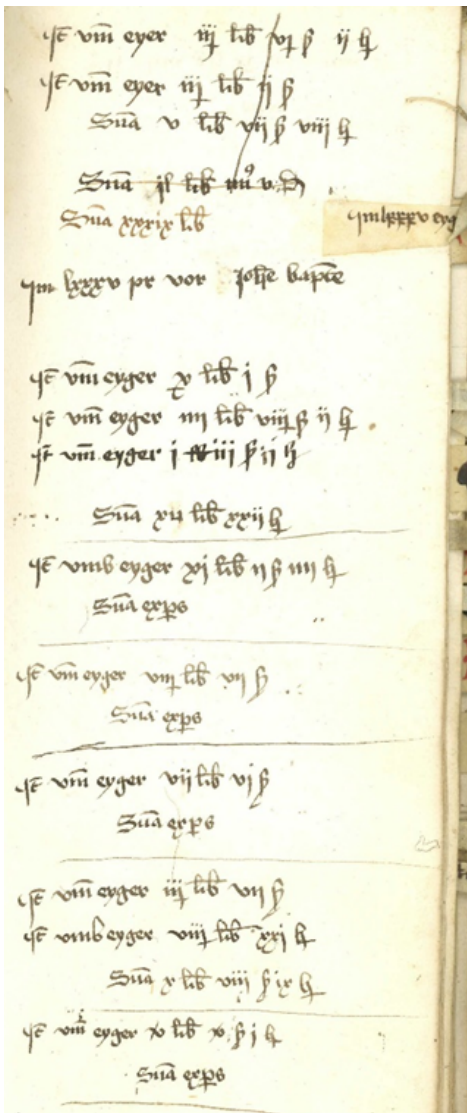 It̄ vm̄ eyer iij lib̄ vj ß ij hꝉ
It̄ vm̄ eyer iij lib̄ ij ß
Sum̄a v lib̄ vij ß viij hꝉ
Sum̄a lib̄
Sum̄a xxxix lib̄
jm lxxxv eyg
jm lxxxv pr vor Joh̄e bapt̄e
It̄ vm̄ eyger x lib̄ j ß
It̄ vm̄ eyger iiij lib̄ viij ß ij hꝉ
It̄ vm̄ eyger j iij ß ij h
Sum̄a lib̄ xxij hꝉ
It̄ vmb eyger xj lib̄ ij ß iiij hꝉ
Sum̄a exp̄s
It̄ vm̄ eyger viij lib̄ vij ß
Sum̄a exp̄s
It̄ vm̄ eyger vij lib̄ vj ß
Sum̄a exp̄s
It̄ vm̄ eyger iij lib̄ vij ß
It̄ vmb eyger viij lib̄ xxj hꝉ
Sum̄a x lib̄ viij ß ix hꝉ
It̄ vm̄ eyger lib̄ ß j hꝉ
Sum̄a exp̄s